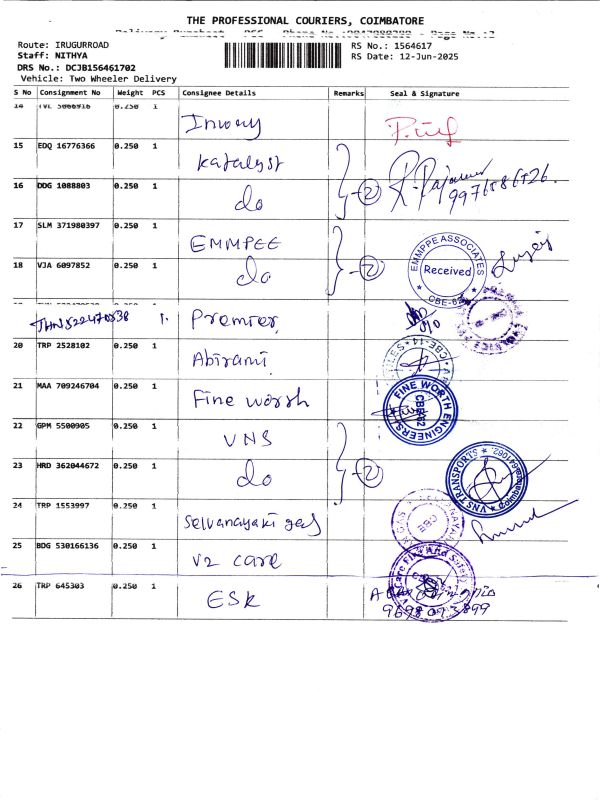 THE PROFESSIONAL COURIERS, COIMBATORE
Route: IRUGURROAD
Staff: NITHYA
DRS No.: DCJB156461702
Vehicle: Two Wheeler Delivery
RS No.: 1564617
RS Date: 12-Jun-2025
S No Consignment No Weight PCS Consignee Details Remarks Seal & Signature
14 TVL 5066916 0.250 1
15 EDQ 16776366 0.250 1 Katalyst
16 DDG 1088803 0.250 1 do 2
9976586426
17 SLM 371980397 0.250 1 EMMPEE
18 VJA 6097852 0.250 1 do 2
EMMPPE ASSOCIATES Received CBE-62
1. Premier
20 TRP 2528102 0.250 1 Abirami
CBE-14
21 MAA 709246704 0.250 1 Fine worth
FINE WORTH ENGINEERS CBE-62
22 GPM 5500905 0.250 1 VNS
23 HRD 362044672 0.250 1 do 2
VNS TRANSPORTS Coimbatore
24 TRP 1553997 0.250 1 Selvanayaki gas
CBE
25 BDG 530166136 0.250 1 V2 care
Care Fire And Safety
26 TRP 645303 0.250 1 ESK
9698093899